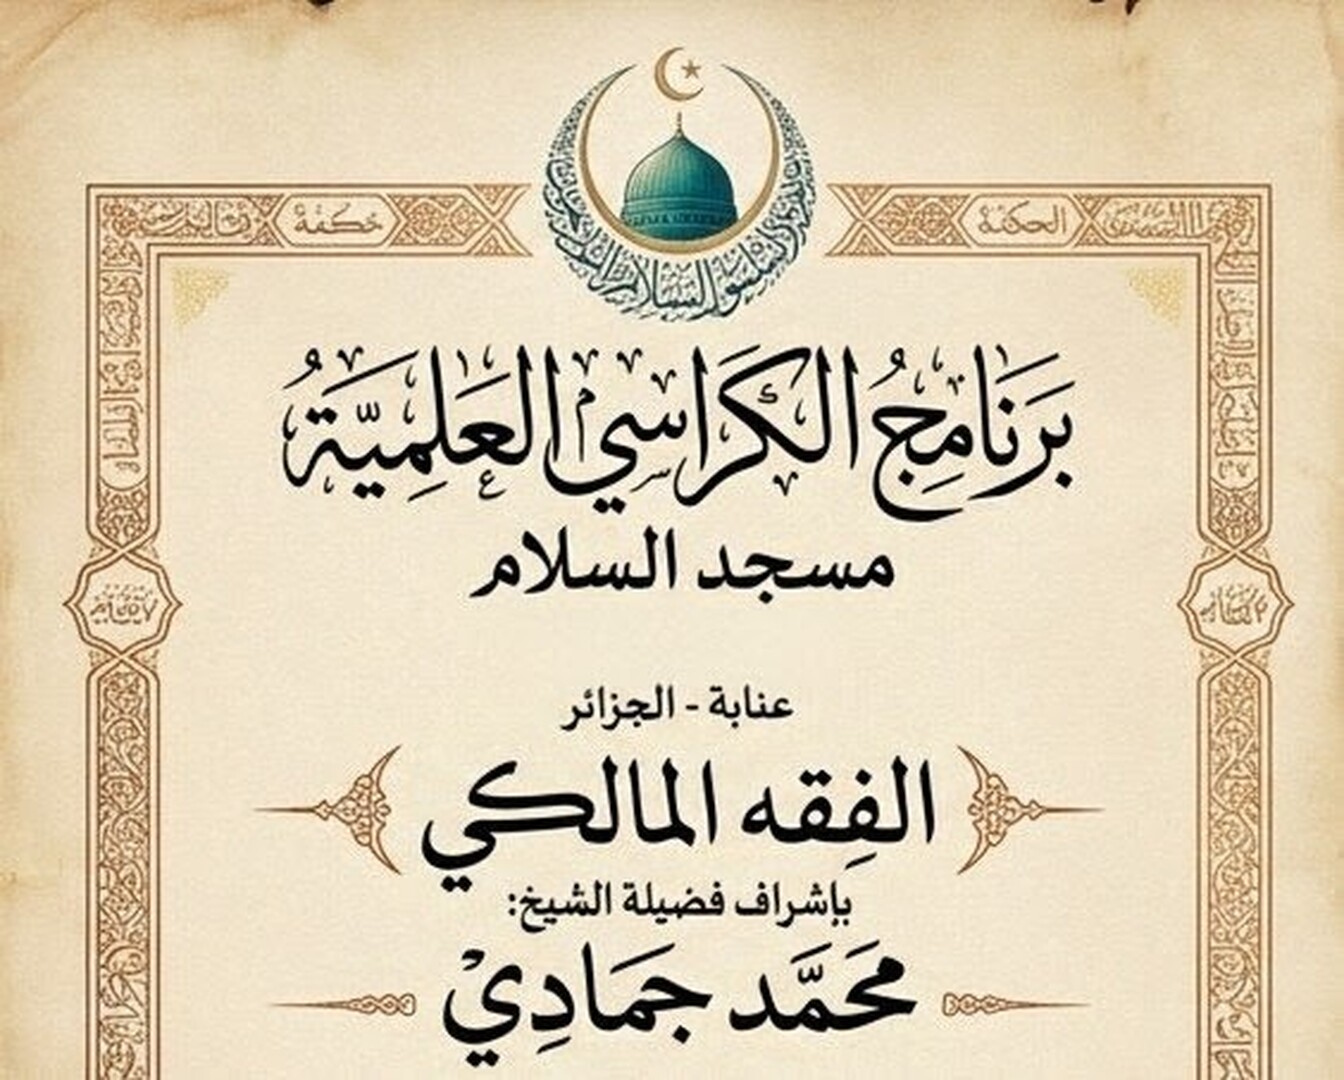 حكمة
الحكمة
بَرنَامِجُ الكَرَاسي العَلِميَّةُ
مسجد السلام
عنابة - الجزائر
الفِقه المالكي
بإشراف فضيلة الشيخ:
محَمَّد جمَادِيْ